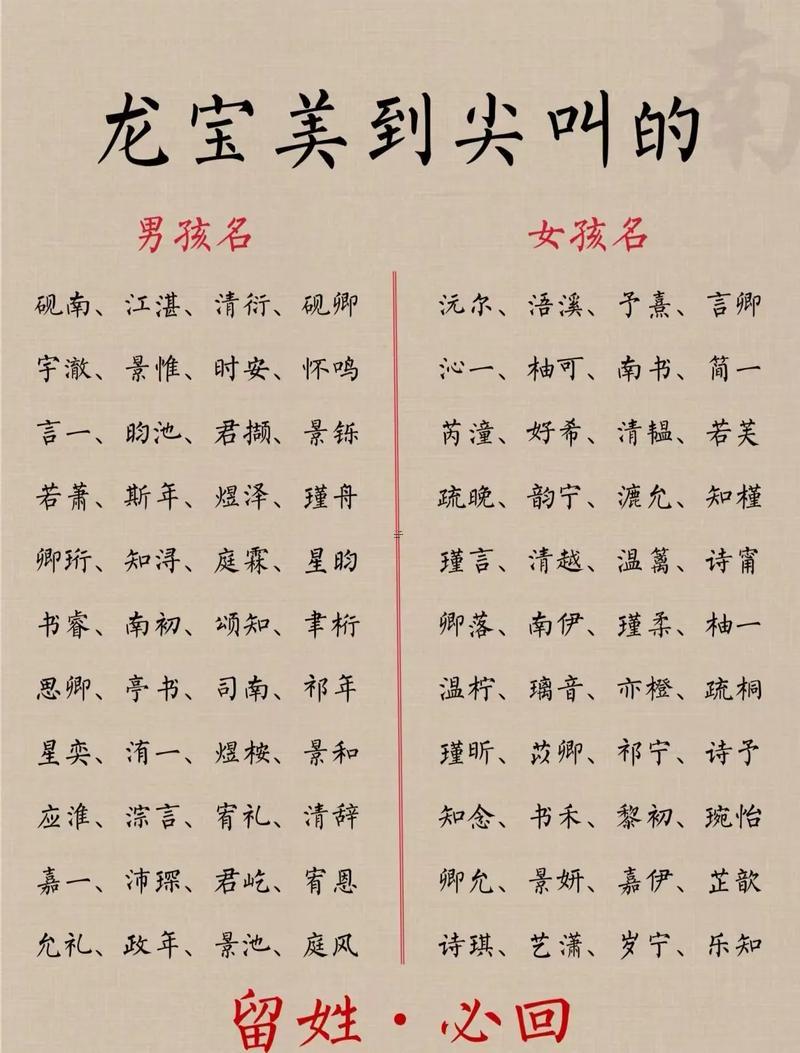 龙宝美到尖叫的
男孩名
砚南、江湛、清衍、砚卿
宇澈、景惟、时安、怀鸣
言一、昀池、君撷、景铄
若萧、斯年、煜泽、瑾舟
卿珩、知浔、庭霖、星昀
书睿、南初、颂知、聿桁
思卿、亭书、司南、祁年
星奕、洧一、煜桉、景和
应淮、淙言、宥礼、清辞
嘉一、沛琛、君屹、宥恩
允礼、政年、景池、庭风
女孩名
沅尔、浯溪、予熹、言卿
沁一、柚可、南书、简一
芮潼、好希、清韫、若芙
疏晚、韵宁、漉允、知槿
瑾言、清越、温篱、诗甯
卿落、南伊、瑾柔、柚一
温柠、璃音、亦橙、疏桐
瑾昕、苡卿、祁宁、诗予
知念、书禾、黎初、琬怡
卿允、景妍、嘉伊、芷歆
诗琪、艺潇、岁宁、乐知
留姓·必回
南